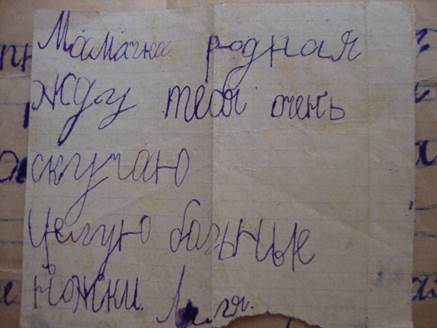 Мамачка родная
жду тебя очень
скучаю
целую больные
ножки. Ляля.